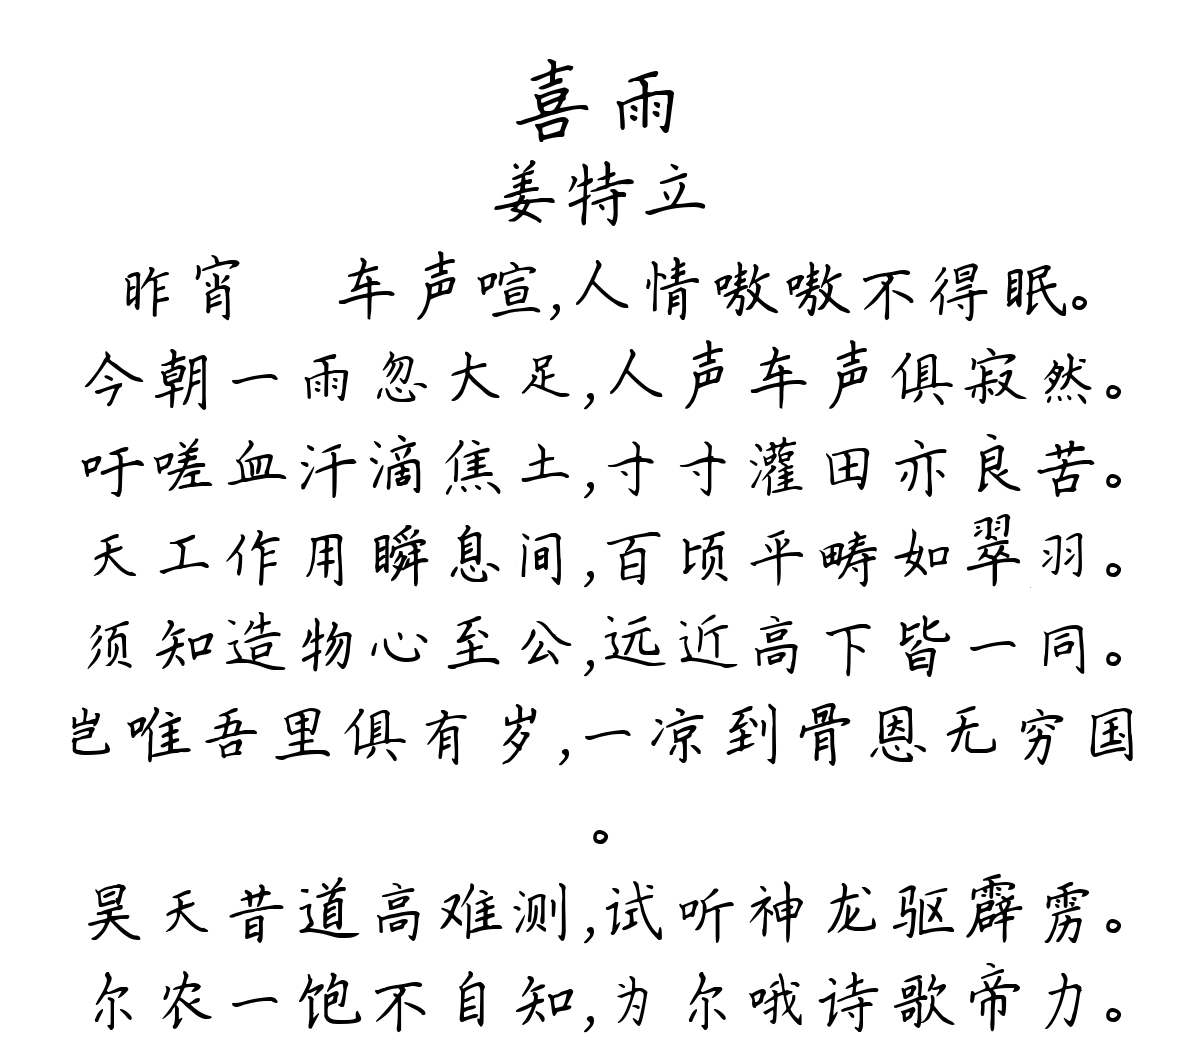 喜雨
姜特立
昨宵 车声喧,人情嗷嗷不得眠。
今朝一雨忽大足,人声车声俱寂然。
吁嗟血汗滴焦土,寸寸灌田亦良苦。
天工作用瞬息间,百顷平畴如翠羽。
须知造物心至公,远近高下皆一同。
岂唯吾里俱有岁,一凉到骨恩无穷国
。
昊天昔道高难测,试听神龙驱霹雳。
尔农一饱不自知,为尔哦诗歌帝力。